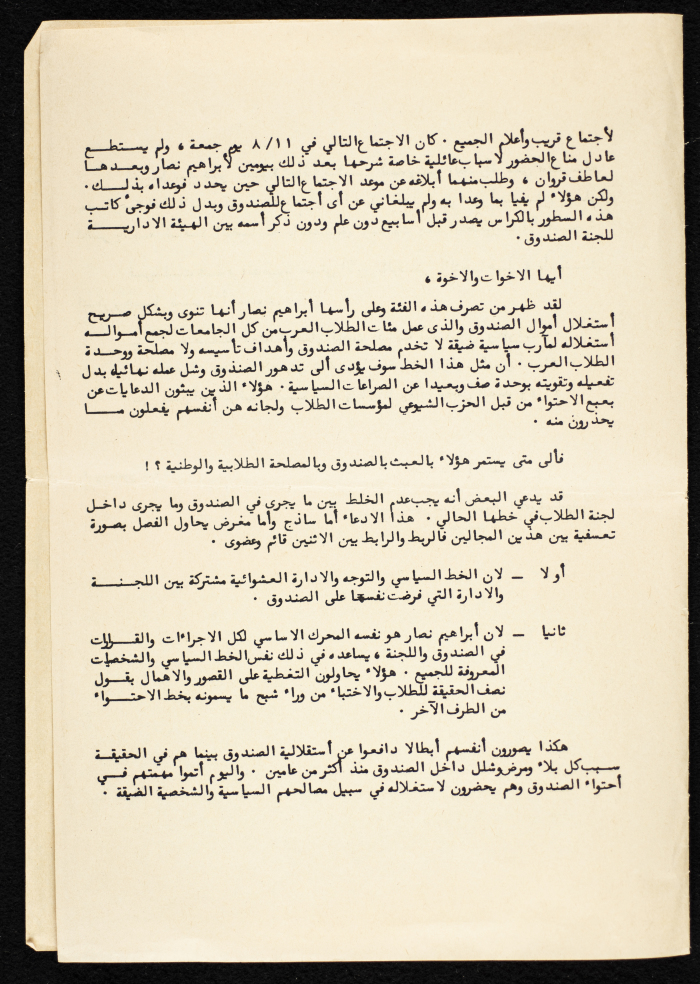 لأجتماع قريب وأعلام الجميع . كان الاجتماع التالي في ٨/١١ يوم جمعة ، ولم يستطـــع
عادل مناع الحضور لاسباب عائلية خاصة شرحها بعد ذلك بيومين لأبراهيم نصار وبعدهــا
لعاطف قروان ، وطلب منهما أبلاغه عن موعد الاجتماع التالي حين يحدد فوعداه بذلــك .
ولكن هؤلاء لم يفيا بما وعدا به ولم يبلغاني عن أى أجتماع للصندوق وبدل ذلك فوجئ كاتب
هذه السطور بالكراس يصدر قبل أسابيع دون علم ودون ذكر أسمه بين الهيئة الاداريــــة
للجنة الصندوق .
أيها الاخوات والاخوة ،
لقد ظهر من تصرف هذه الفئة وعلى رأسها أبراهيم نصار أنها تنوى وبشكل صريــح
أستغلال أموال الصندوق والذى عمل مئات الطلاب العرب من كل الجامعات لجمع أموالــه
أستغلاله لمآرب سياسية ضيقة لا تخدم مصلحة الصندوق وأهداف تأسيسه ولا مصلحة ووحــدة
الطلاب العرب . أن مثل هذا الخط سوف يؤدى ألى تدهور الصندوق وشل عمله نهائيا بدل
تفعيله وتقويته بوحدة صف وبعيدا عن الصراعات السياسية . هؤلاء الذين يبثون الدعايات عن
بعبع الاحتواء من قبل الحزب الشيوعي لمؤسسات الطلاب ولجانه هن أنفسهم يفعلون مـــا
يحذرون منه .
فألى متى يستمر هؤلاء بالعبث بالصندوق وبالمصلحة الطلابية والوطنية ؟ !
قد يدعي البعض أنه يجب عدم الخلط بين ما يجرى في الصندوق وما يجرى داخــل
لجنة الطلاب في خطها الحالي . هذا الادعاء أما ساذج وأما مغرض يحاول الفصل بصورة
تعسفية بين هذين المجالين فالربط والرابط بين الاثنين قائم وعضوى .
أولا ــ لان الخط السياسي والتوجه والادارة العشوائية مشتركة بين اللجنـــة
والادارة التي فرضت نفسها على الصندوق .
ثانيا ــ لان أبراهيم نصار هو نفسه المحرك الاساسي لكل الاجراءات والقــرارات
في الصندوق واللجنة ، يساعده في ذلك نفس الخط السياسي والشخصيات
المعروفة للجميع . هؤلاء يحاولون التغطية على القصور والاهمال بقــول
نصف الحقيقة للطلاب والاختباء من وراء شبح ما يسمونه بخط الاحتــواء
من الطرف الآخر .
هكذا يصورون أنفسهم أبطالا دافعوا عن أستقلالية الصندوق بينما هم في الحقيقــة
سبب كل بلاء ومرض وشلل داخل الصندوق منذ أكثر من عامين . واليوم أتموا مهمتهم فــي
أحتواء الصندوق وهم يحضرون لاستغلاله في سبيل مصالحهم السياسية والشخصية الضيقة .